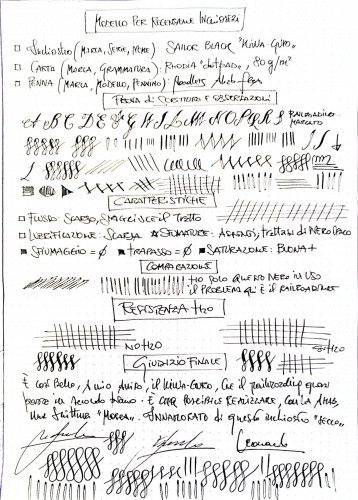 MODELLO PER RECENSIONE INCHIOSTRI
INCHIOSTRO (MARCA, SERIE, NOME): SAILOR BLACK "KIWA-GURO"
CARTA (MARCA, GRAMMATURA): RHODIA "dotPAD", 80 g/m²
PENNA (MARCA, MODELLO, PENNINO): Noodlers Ahab flex
PROVA DI SCRITTURA E OSSERVAZIONI
A B C D E F G H I L M N O P Q R S RAILROADING MARCATO
CARATTERISTICHE
FLUSSO: SCARSO, SMAGRISCE IL TRATTO
LUBRIFICAZIONE: SCARSA SFUMATURE: ASSENTI, TRATTASI DI NERO
SFIUMAGGIO = Ø TRAPASSO = Ø SATURAZIONE: BUONA +
COMPARAZIONE
HO SOLO QUESTO NERO IN USO
IL PROBLEMA QUI È IL RAILROADING
RESISTENZA H2O
NO H2O
SI H2O
GIUDIZIO FINALE
È così bello, Amico Amiro, il KIWA-GURO, che il railroading quasi
passa in secondo piano. È POSSIBILE REALIZZARE, CON LA AHAB,
UNA SCRITTURA "MORBIDA". INNAMORATO di questo inchiostro "SECCO".
Leonardo